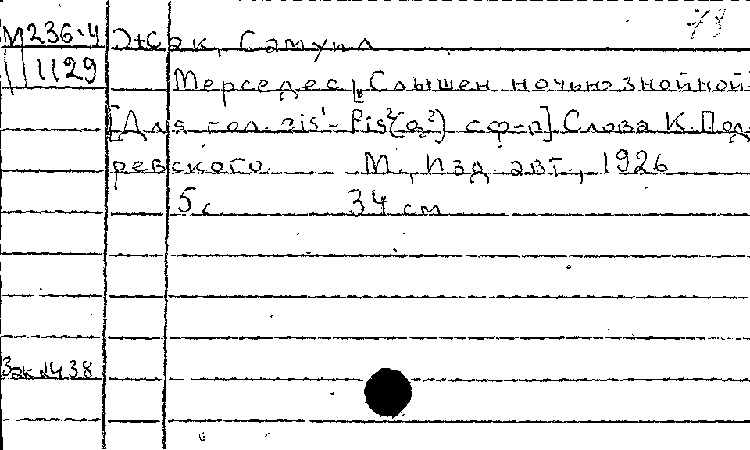 М236-4 Жак, Самуил 78
1129
Мерседес. Слышен ночью знойной
[Для гол. gis¹-fis²(a²) с ф-п] Слова К. Под
ревского М., Изд. авт., 1926
5 с 34 см
Зак. 1438